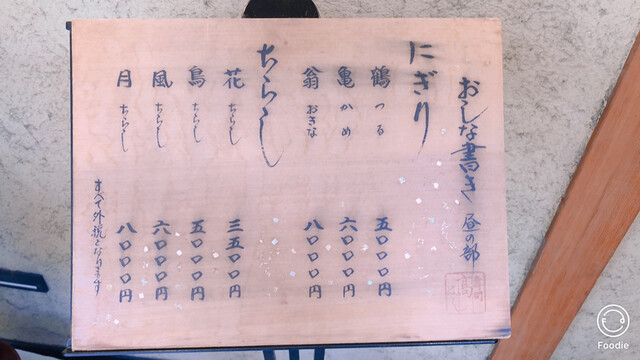 おしな書き 昼の部
にぎり
鶴 つる 五〇〇〇円
亀 かめ 六〇〇〇円
翁 おきな 八〇〇〇円
ちらし
花 ちらし 三五〇〇円
鳥 ちらし 五〇〇〇円
風 ちらし 六〇〇〇円
月 ちらし 八〇〇〇円
すべて外税となります
Foodie